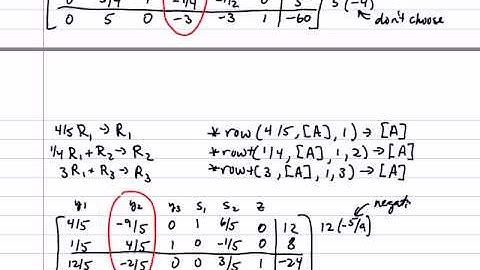 0 5 0 -3 -3 1 -60
don't choose
4/5 R₁ → R₁ *row(4/5, [A], 1) → [A]
1/4 R₁ + R₂ → R₂ *row+(1/4, [A], 1, 2) → [A]
3 R₁ + R₃ → R₃ *row+(3, [A], 1, 3) → [A]
negati
y₁ y₂ y₃ s₁ s₂ z
4/5 -9/5 0 1 6/5 0 12 12(-5/9)
1/5 4/5 1 0 -1/5 0 8
12/5 -2/5 0 0 3/5 1 -24